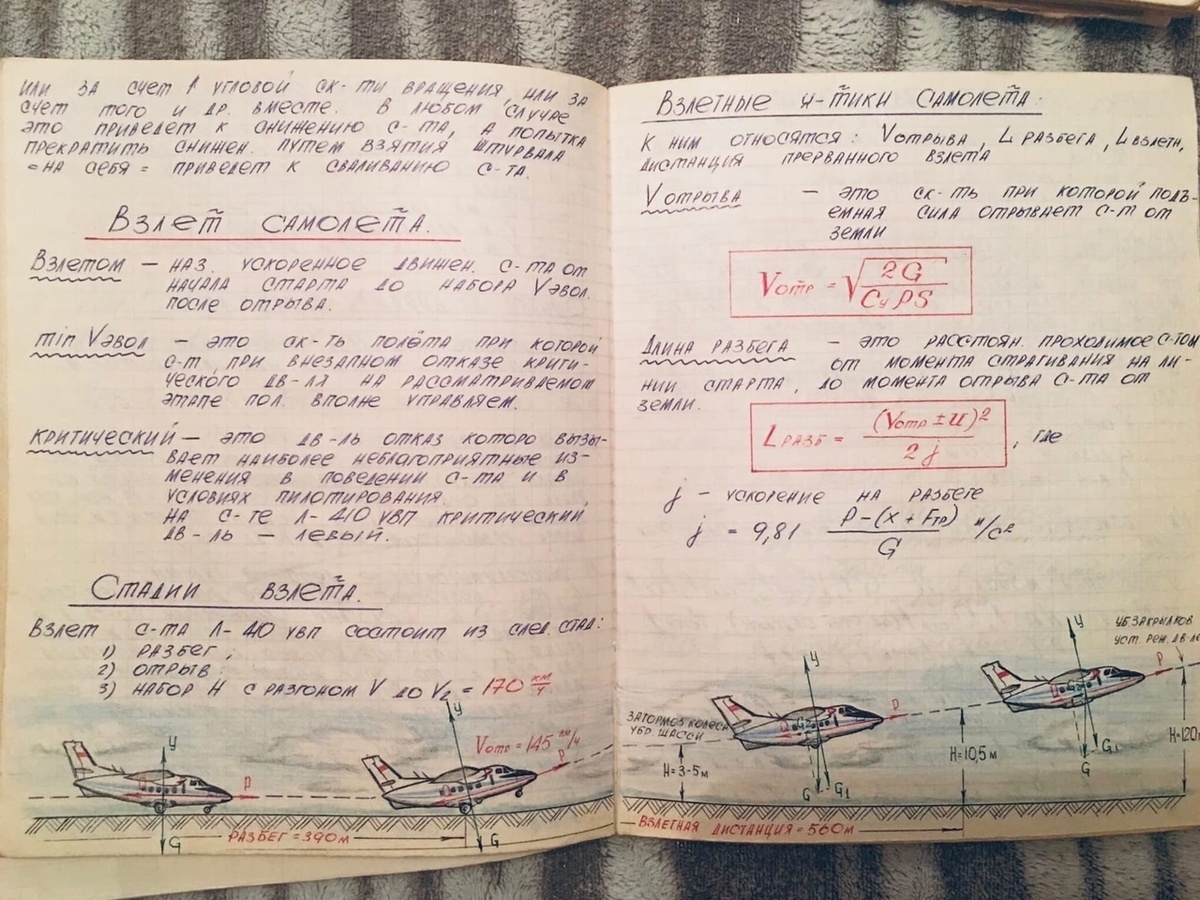 или за счет ↑ угловой ск-ти вращения, или за
счет того и др. вместе. В любом случае
это приведет к снижению с-та, а попытка
прекратить снижен. путем взятия штурвала
=на себя= приведет к сваливанию с-та.
Взлет самолета.
Взлетом — наз. ускоренное движен. с-та от
начала старта до набора Vэвол.
после отрыва.
min Vэвол — это ск-ть полета при которой
с-т, при внезапном отказе крити-
ческого дв-ля на рассматриваемом
этапе пол. вполне управляем.
Критический — это дв-ль отказ которо вызы-
вает наиболее неблагоприятные из-
менения в поведении с-та и в
условиях пилотирования.
На с-те Л-410 УВП критический
дв-ль — левый.
Стадии взлета.
Взлет с-та Л-410 УВП состоит из след. стад:
1) разбег;
2) отрыв
3) набор H с разгоном V до V₂ = 170 км/ч
Vотр = 145 км/ч
У
P
G
У
P
G
Разбег = 390 м
Взлетные х-тики самолета:
К ним относятся: Vотрыва, L разбега, L взлетн,
дистанция прерванного взлета
Vотрыва — это ск-ть при которой подъ-
емная сила отрывает с-т от
земли
Vотр = √(2G / CуρS)
Длина разбега — это расстоян. проходимое с-том
от момента страгивания на ли-
нии старта, до момента отрыва с-та от
земли.
Lразб = (Vотр ± U)² / 2j , где
j — ускорение на разбеге
j = 9,81 P-(X+Fтр) / G м/с²
Затормоз колеса
убр шасси
H=3-5м
У
P
G
G
G₁
H=10,5м
У
P
G
G₁
Уб. закрылков
уст. реж. дв-ле
H=120м
Взлетная дистанция = 560м